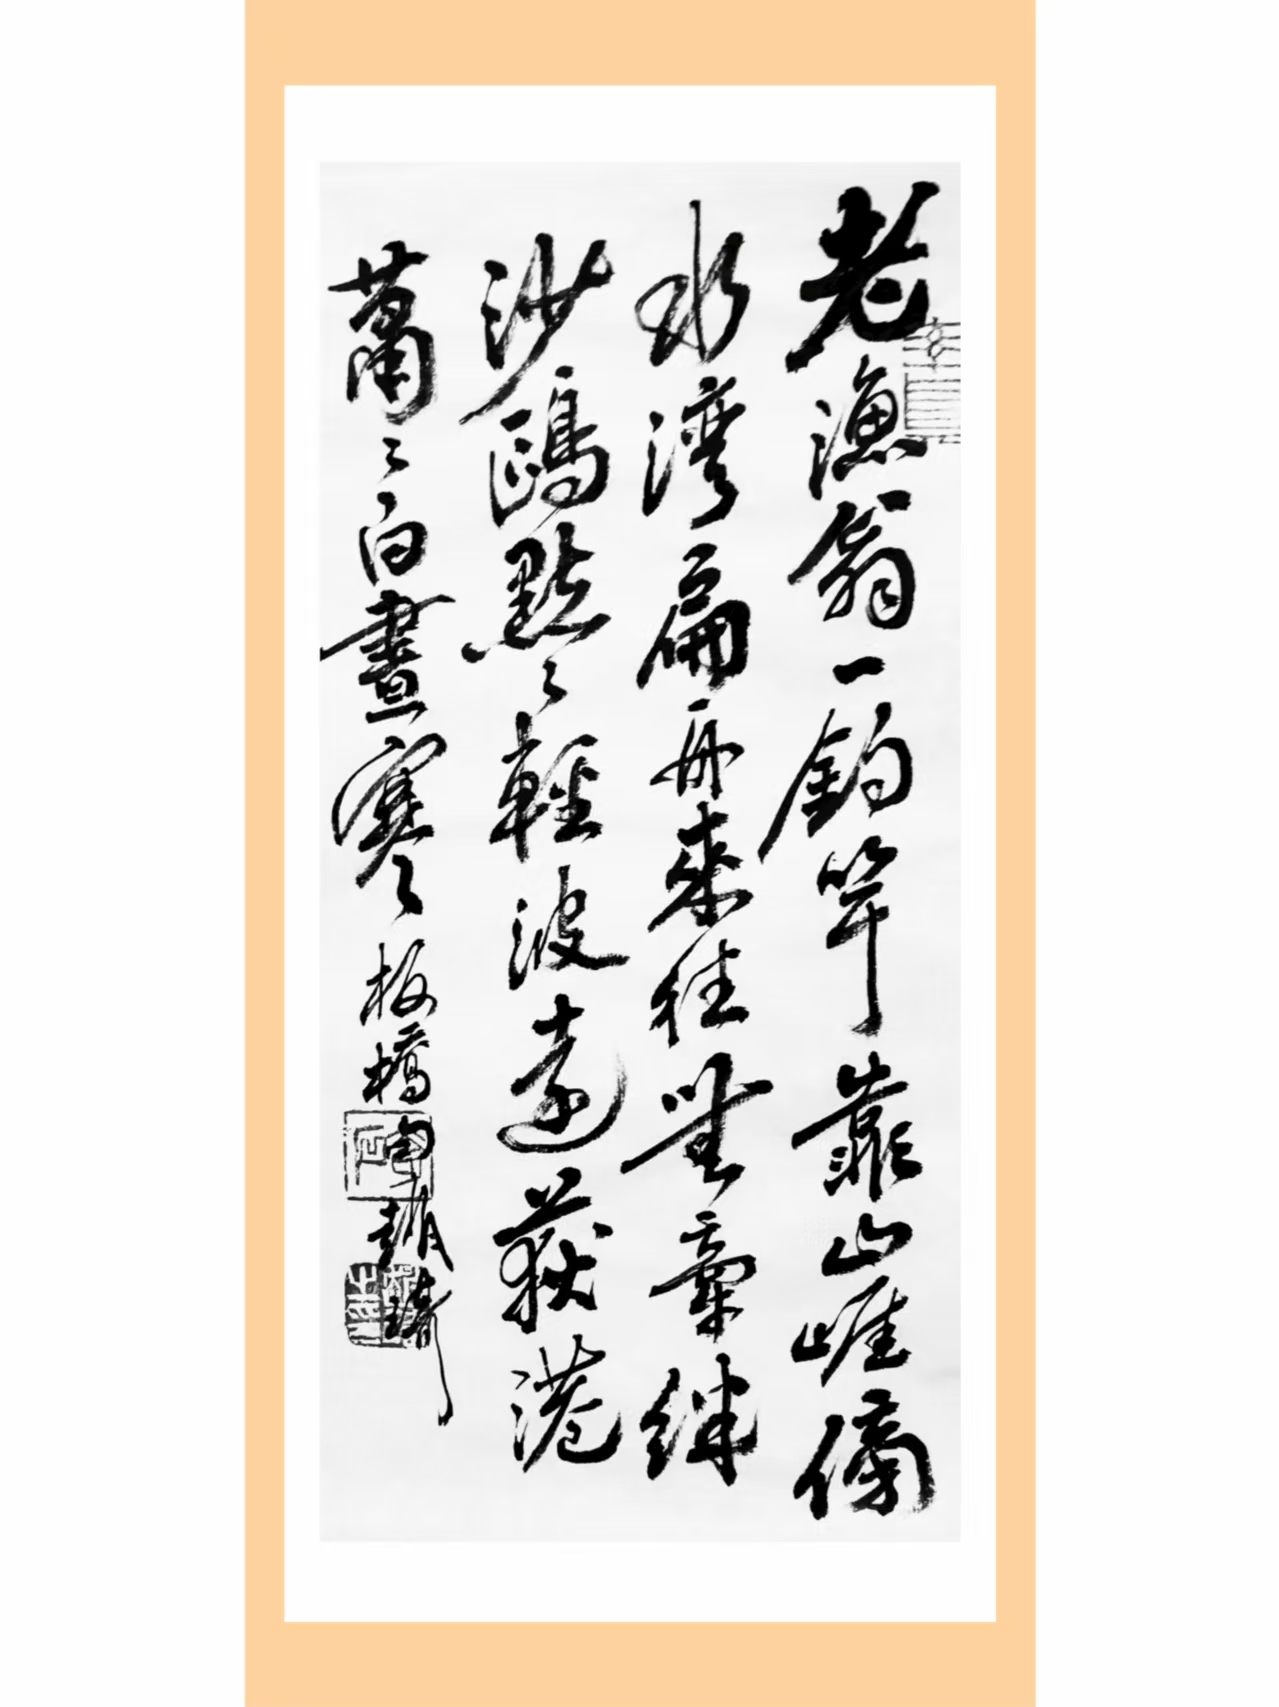 老漁翁一釣竿靠山崖傍
水灣扁舟來往無牽絆
沙鷗點〻輕波遠荻港
蕭〻白晝寒 板橋句